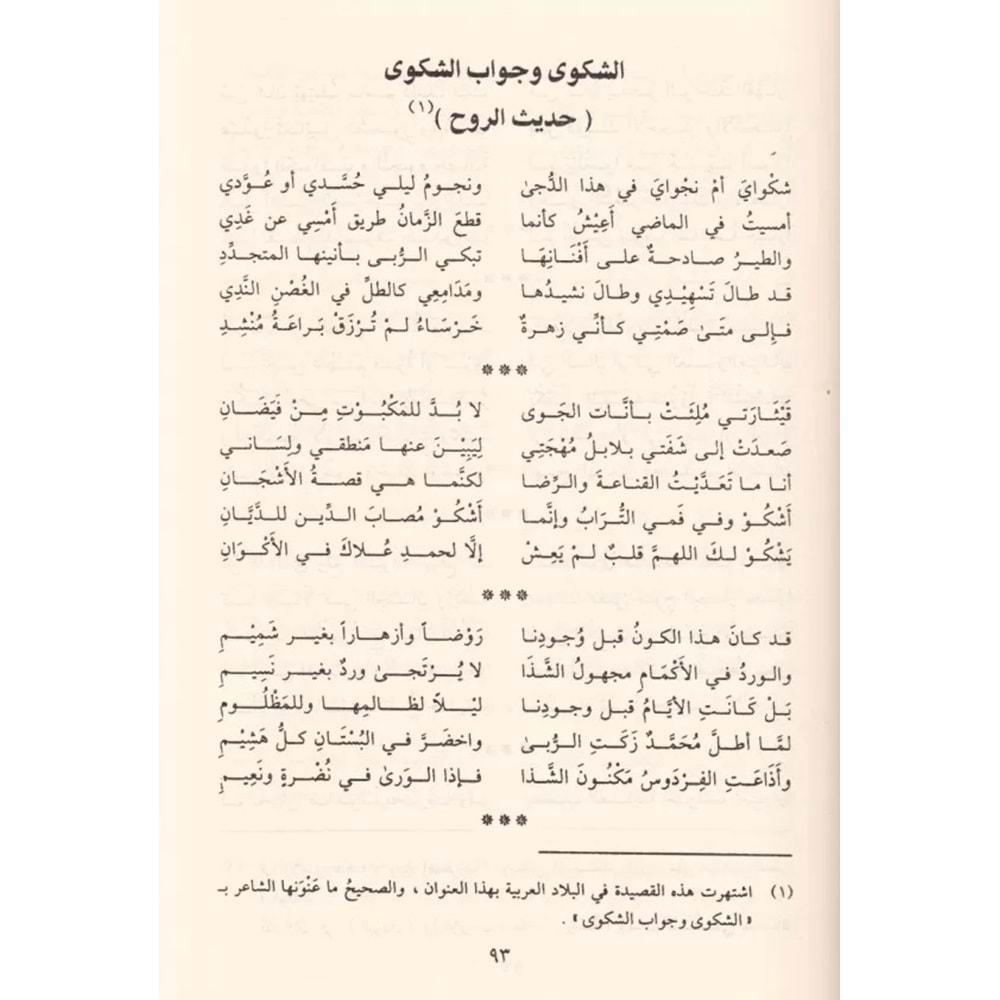 الشكوى وجواب الشكوى
( حديث الروح )(١)
شكوايَ أمْ نجْوايَ في هذا الدُّجىٰ ونجومُ ليلي حُسَّدي أو عُوَّدي
أمسيتُ في الماضي أَعِيْشُ كأنما قطعَ الزَّمانُ طريق أَمْسِي عن غَدِي
والطيرُ صادحةٌ على أَفْنَانِهَا تبكي الرُّبى بأنينها المتجدِّدِ
قد طالَ تَسْهِيْدِي وطالَ نشيدُها ومَدَامِعِي كالطلِّ في الغُصْنِ النَّدِي
فإلى متَىٰ صَمْتِي كأنِّي زهرةٌ خَرْسَاءُ لمْ تُرْزَقْ بَراعَةُ مُنْشِدِ
***
قَيْثارَتي مُلِئَتْ بأنَّات الجَوى لا بُدَّ للمَكْبُوْتِ مِنْ فَيَضَانِ
صَعدَتْ إلى شَفَتي بلابلُ مُهْجَتِي لِيَبِيْنَ عنها مَنطقي ولِسَاني
أنا ما تَعَدَّيْتُ القناعةَ والرِّضا لكنَّما هي قصةُ الأَشْجَانِ
أَشْكُوْ وفي فَمي التُّرَابُ وإنَّما أَشْكُوْ مُصابَ الدِّين للدَّيَّانِ
يَشْكُوْ لكَ اللهمَّ قلبٌ لمْ يَعِشْ إلَّا لحمدِ عُلاكَ في الأَكْوَانِ
***
قد كانَ هذا الكونُ قبل وُجودِنا رَوْضاً وأزهاراً بغير شَمِيْمِ
والوردُ في الأَكْمَامِ مجهولُ الشَّذا لا يُرْتَجىٰ وردٌ بغير نَسِيمِ
بَلْ كَانَتِ الأيَّامُ قبل وجودِنا ليْلاً لظالمِها وللمَظْلُومِ
لمَّا أطلَّ مُحَمَّدٌ زكَتِ الرُّبىٰ واخضَرَّ في البُسْتَانِ كلُّ هَشِيْمِ
وأَذَاعَتِ الفِرْدَوسُ مَكْنُونَ الشَّذا فإذا الورىٰ في نُضْرةٍ ونَعِيمِ
***
(١) اشتهرت هذه القصيدة في البلاد العربية بهذا العنوان ، والصحيحُ ما عَنْوَنها الشاعر بـ
« الشكوى وجواب الشكوى » .
٩٣